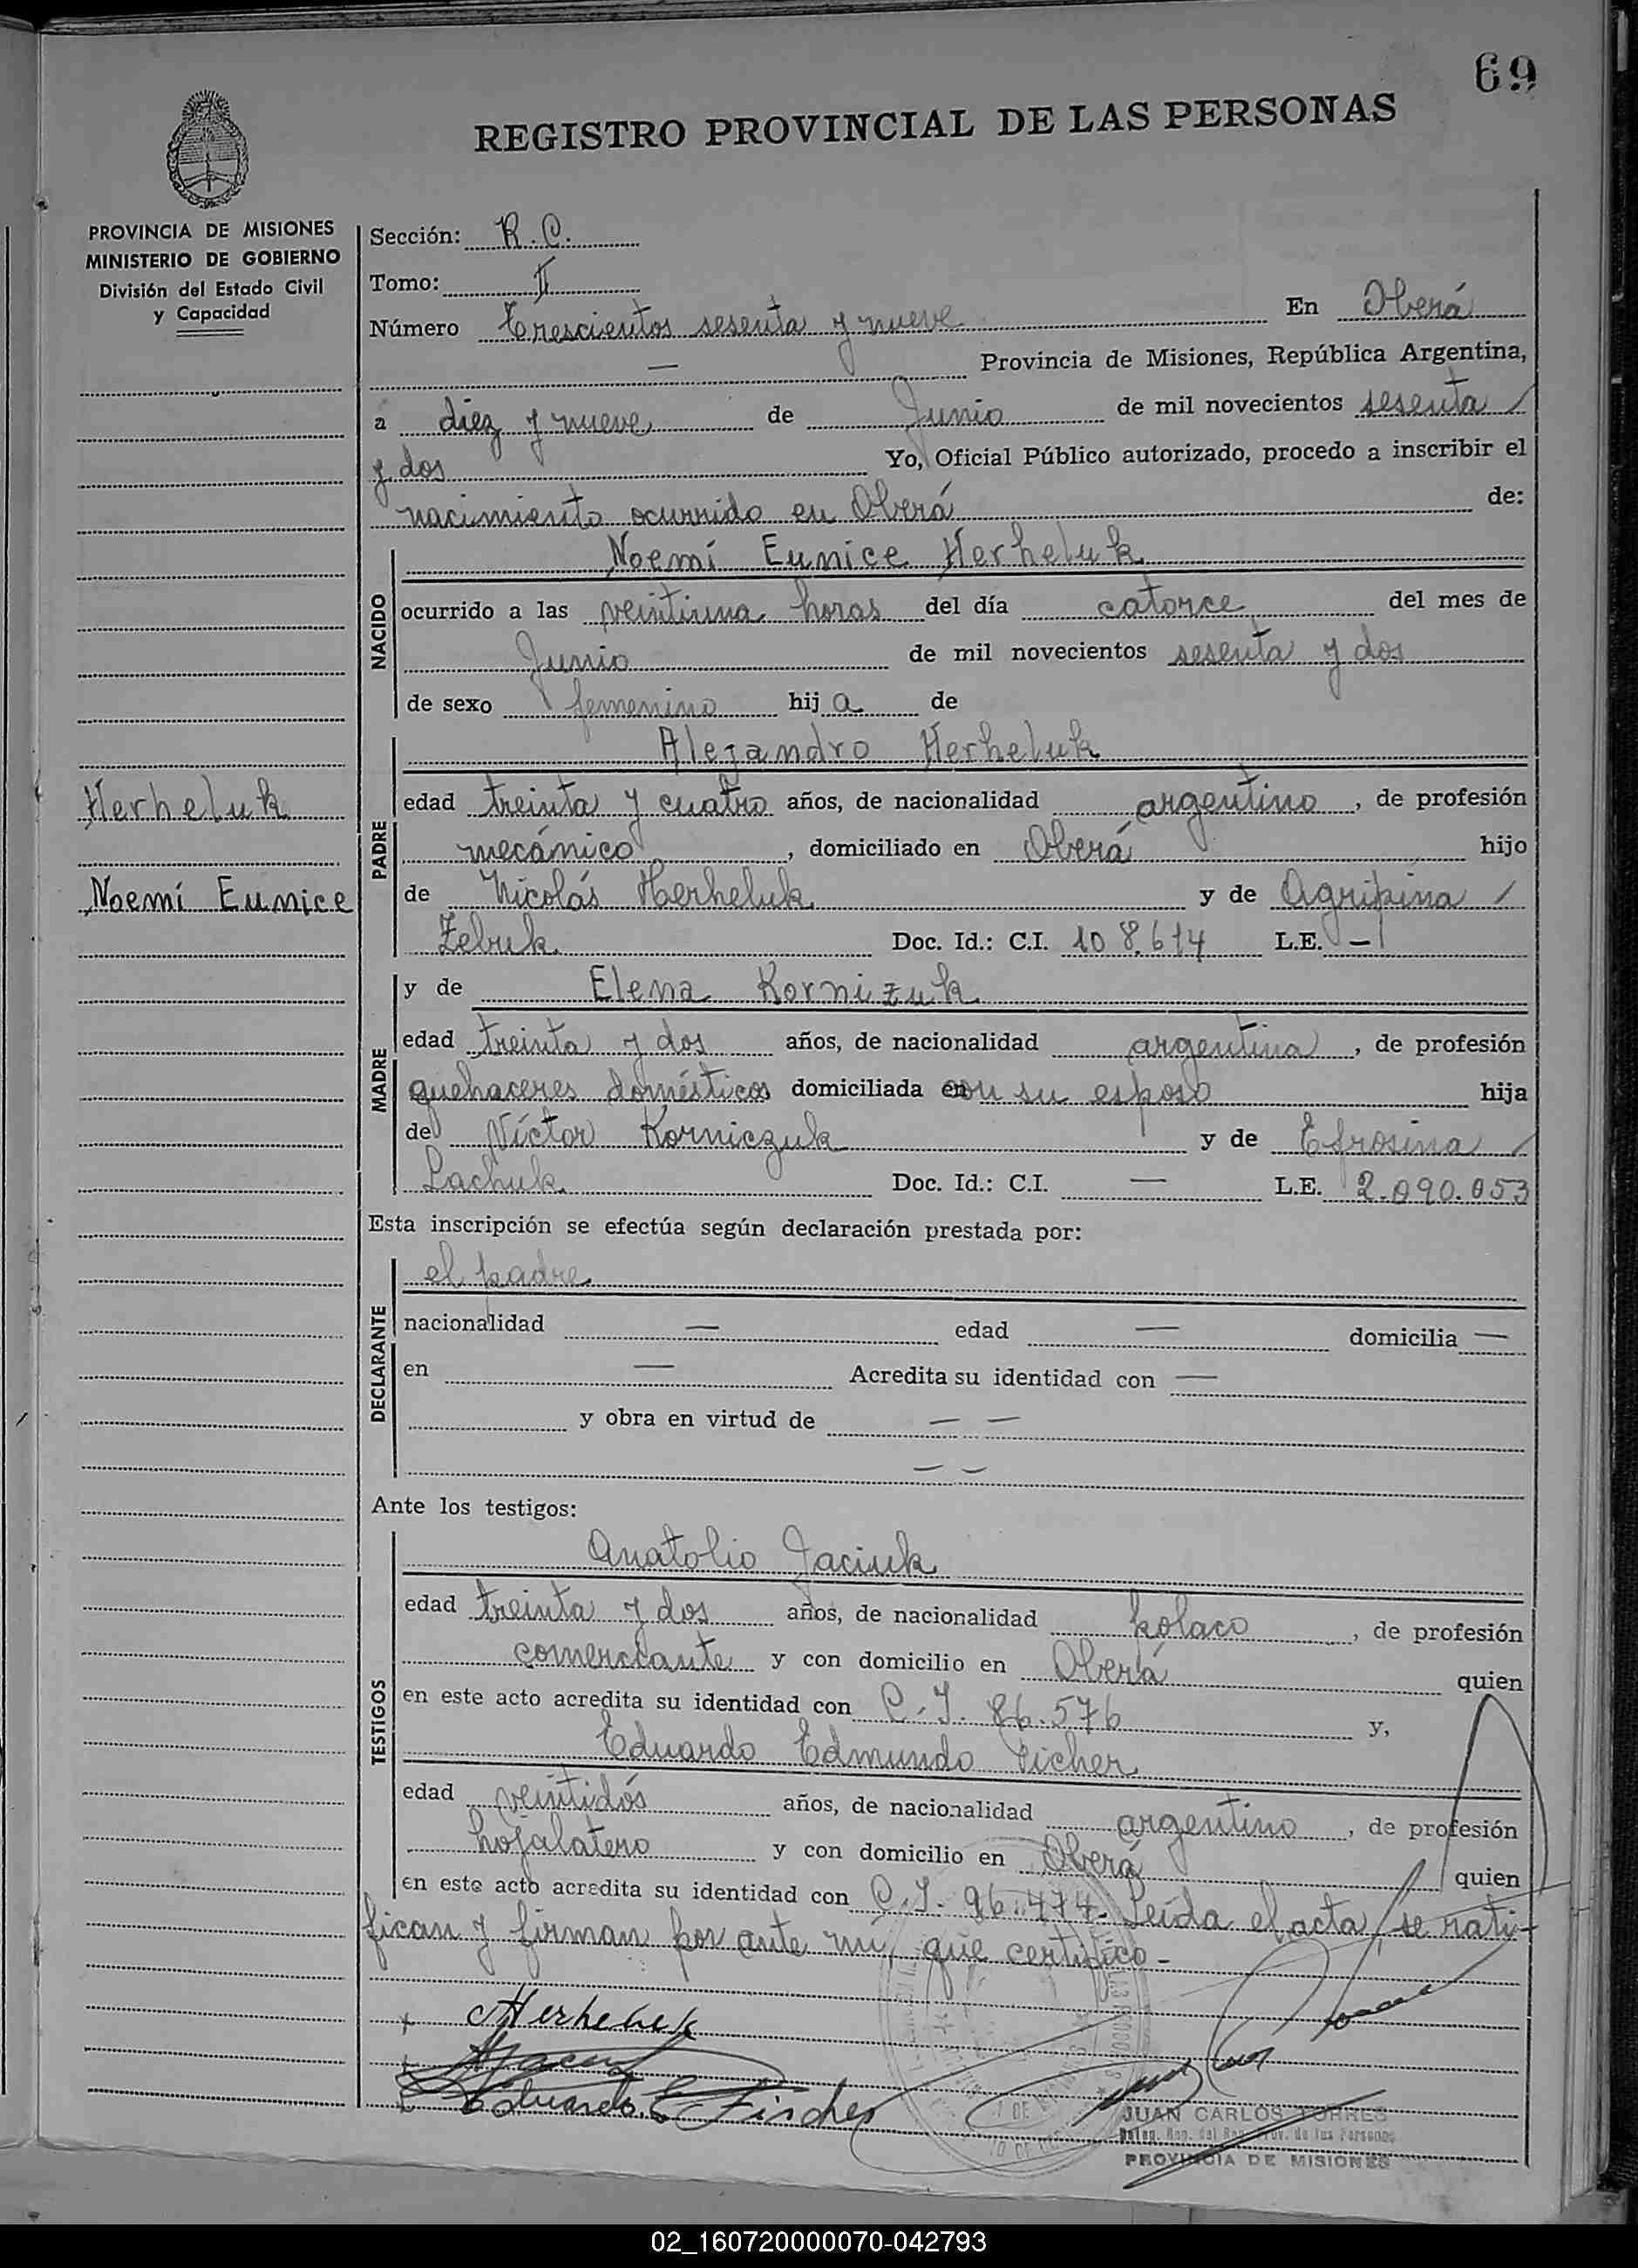 69
REGISTRO PROVINCIAL DE LAS PERSONAS
PROVINCIA DE MISIONES
MINISTERIO DE GOBIERNO
División del Estado Civil
y Capacidad
Herheluk
Noemí Eunice
Sección: R.C.
Tomo: II
Número Trescientos sesenta y nueve En Oberá
— Provincia de Misiones, República Argentina,
a diez y nueve de Junio de mil novecientos sesenta /
y dos Yo, Oficial Público autorizado, procedo a inscribir el
nacimiento ocurrido en Oberá de:
NACIDO
Noemí Eunice Herheluk
ocurrido a las veintiuna horas del día catorce del mes de
Junio de mil novecientos sesenta y dos
de sexo femenino hij a de
PADRE
Alejandro Herheluk
edad treinta y cuatro años, de nacionalidad argentino, de profesión
mecánico, domiciliado en Oberá hijo
de Nicolás Herheluk y de Agripina /
Zebruk Doc. Id.: C.I. 108.614 L.E. —
MADRE
y de Elena Kornizuk
edad treinta y dos años, de nacionalidad argentina, de profesión
quehaceres domésticos domiciliada con su esposo hija
de Víctor Korniczuk y de Efrosina /
Lachuk Doc. Id.: C.I. — L.E. 2.090.053
Esta inscripción se efectúa según declaración prestada por:
DECLARANTE
el padre
nacionalidad — edad — domicilia —
en — Acredita su identidad con —
y obra en virtud de — —
— —
Ante los testigos:
TESTIGOS
Anatolio Jaciuk
edad treinta y dos años, de nacionalidad polaco, de profesión
comerciante y con domicilio en Oberá quien
en este acto acredita su identidad con C.I. 86.576 y,
Eduardo Edmundo Ficher
edad veintidós años, de nacionalidad argentino, de profesión
hojalatero y con domicilio en Oberá quien
en este acto acredita su identidad con C.I. 96.474. Leída el acta, se rati-
fican y firman por ante mí, que certifico -
Herheluk
Eduardo E Fischer
JUAN CARLOS TORRES
Deleg. Reg. del Reg. Prov. de las Personas
PROVINCIA DE MISIONES
02_160720000070-042793